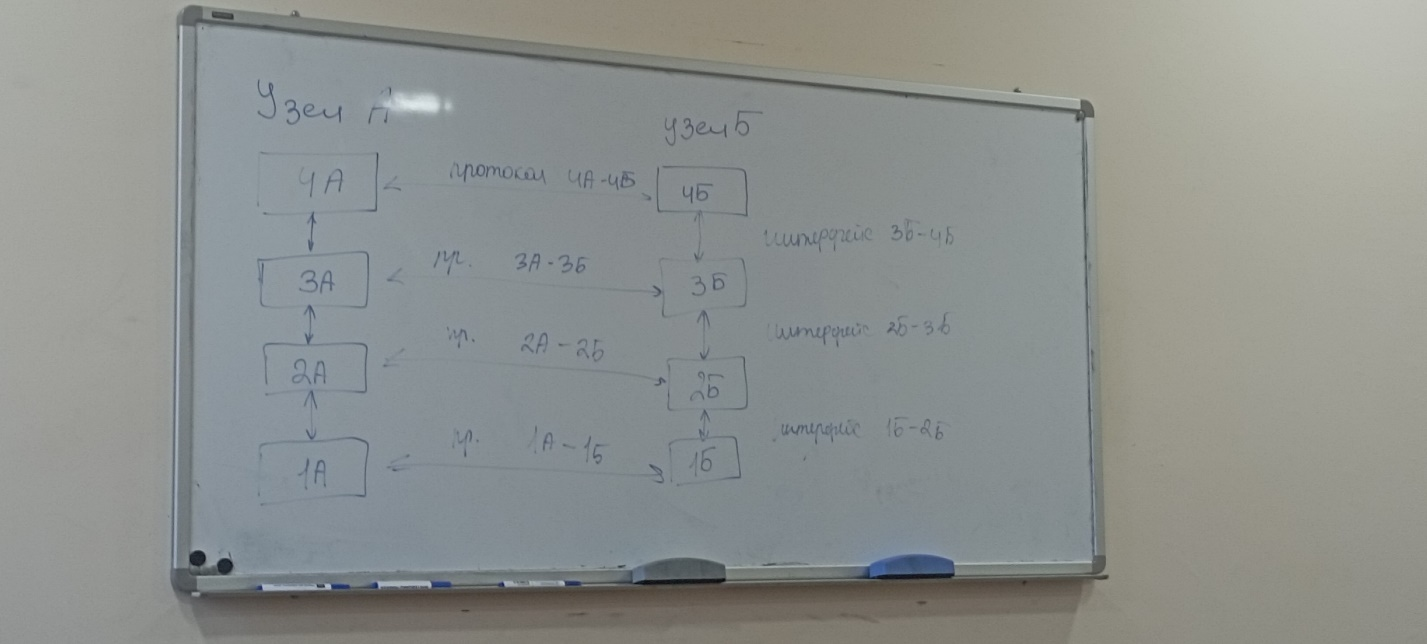 Узел А
узел Б
4А
протокол 4А-4Б
4Б
интерфейс 3Б-4Б
3А
пр. 3А-3Б
3Б
интерфейс 2Б-3Б
2А
пр. 2А-2Б
2Б
интерфейс 1Б-2Б
1А
пр. 1А-1Б
1Б